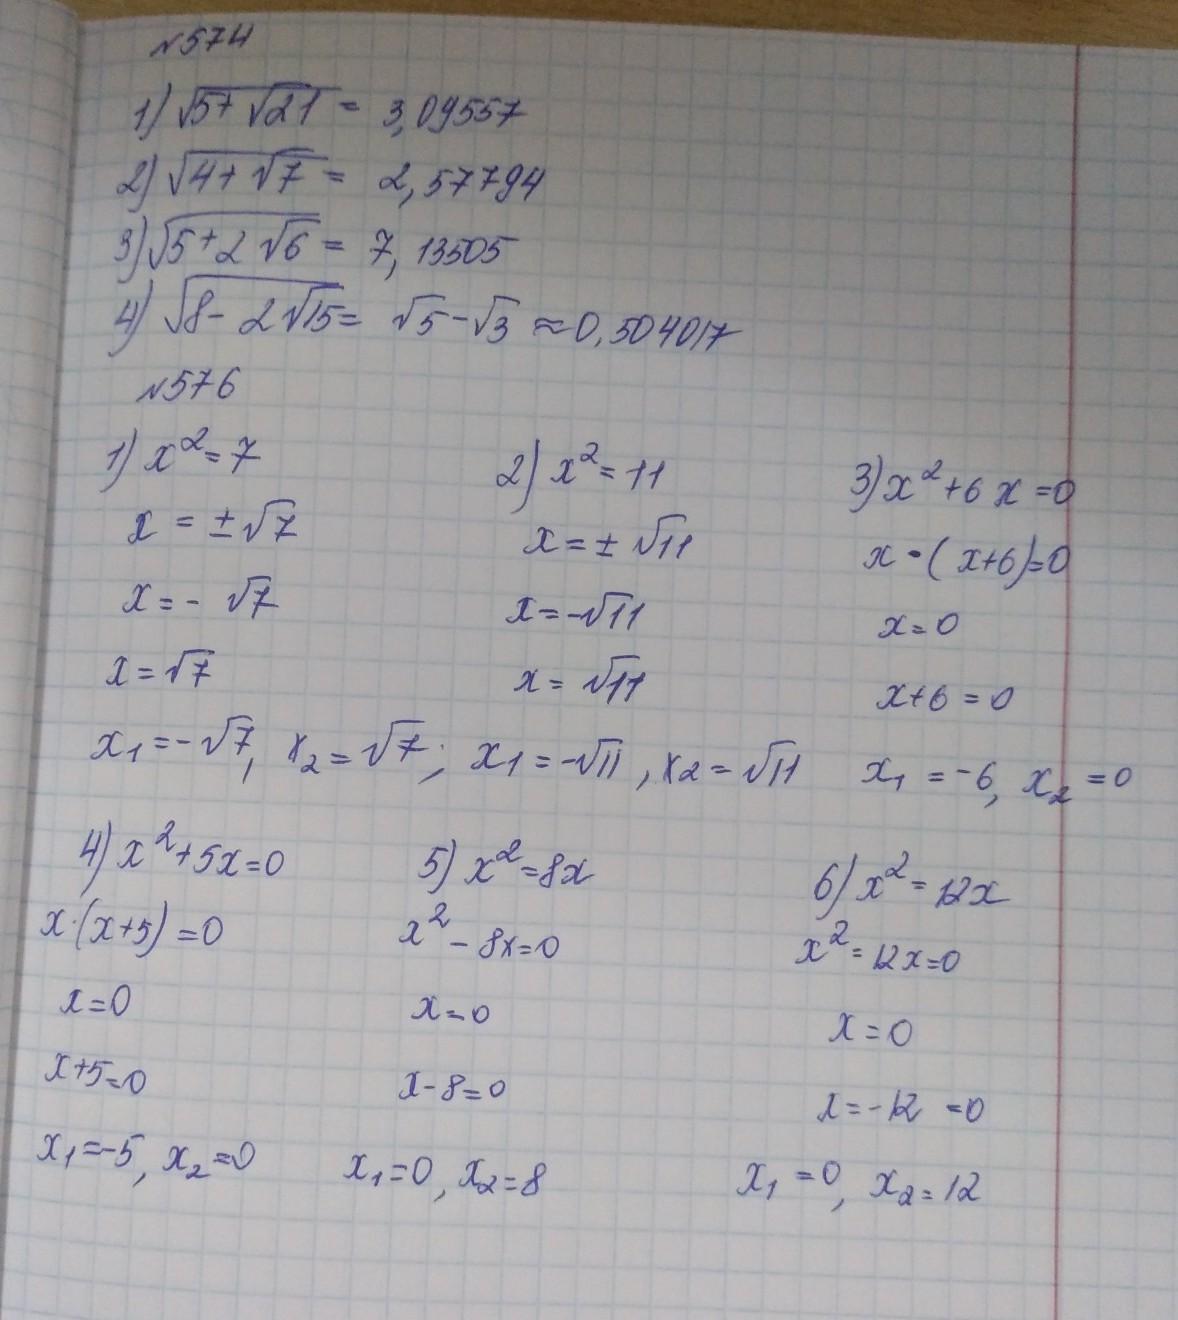 №574
1) √(5+√21) = 3,09557
2) √(4+√7) = 2,57794
3) √(5+2√6) = 7,13505
4) √(8-2√15) = √5-√3 ≈ 0,504017
№576
1) x²=7
x = ±√7
x = - √7
x = √7
x₁ = -√7, x₂ = √7;
2) x² = 11
x = ± √11
x = -√11
x = √11
x₁ = -√11, x₂ = √11
3) x²+6x=0
x·(x+6)=0
x=0
x+6=0
x₁ = -6, x₂ = 0
4) x²+5x=0
x·(x+5)=0
x=0
x+5=0
x₁=-5, x₂=0
5) x²=8x
x²-8x=0
x=0
x-8=0
x₁=0, x₂=8
6) x²=12x
x²=12x=0
x=0
x=-12=0
x₁=0, x₂=12